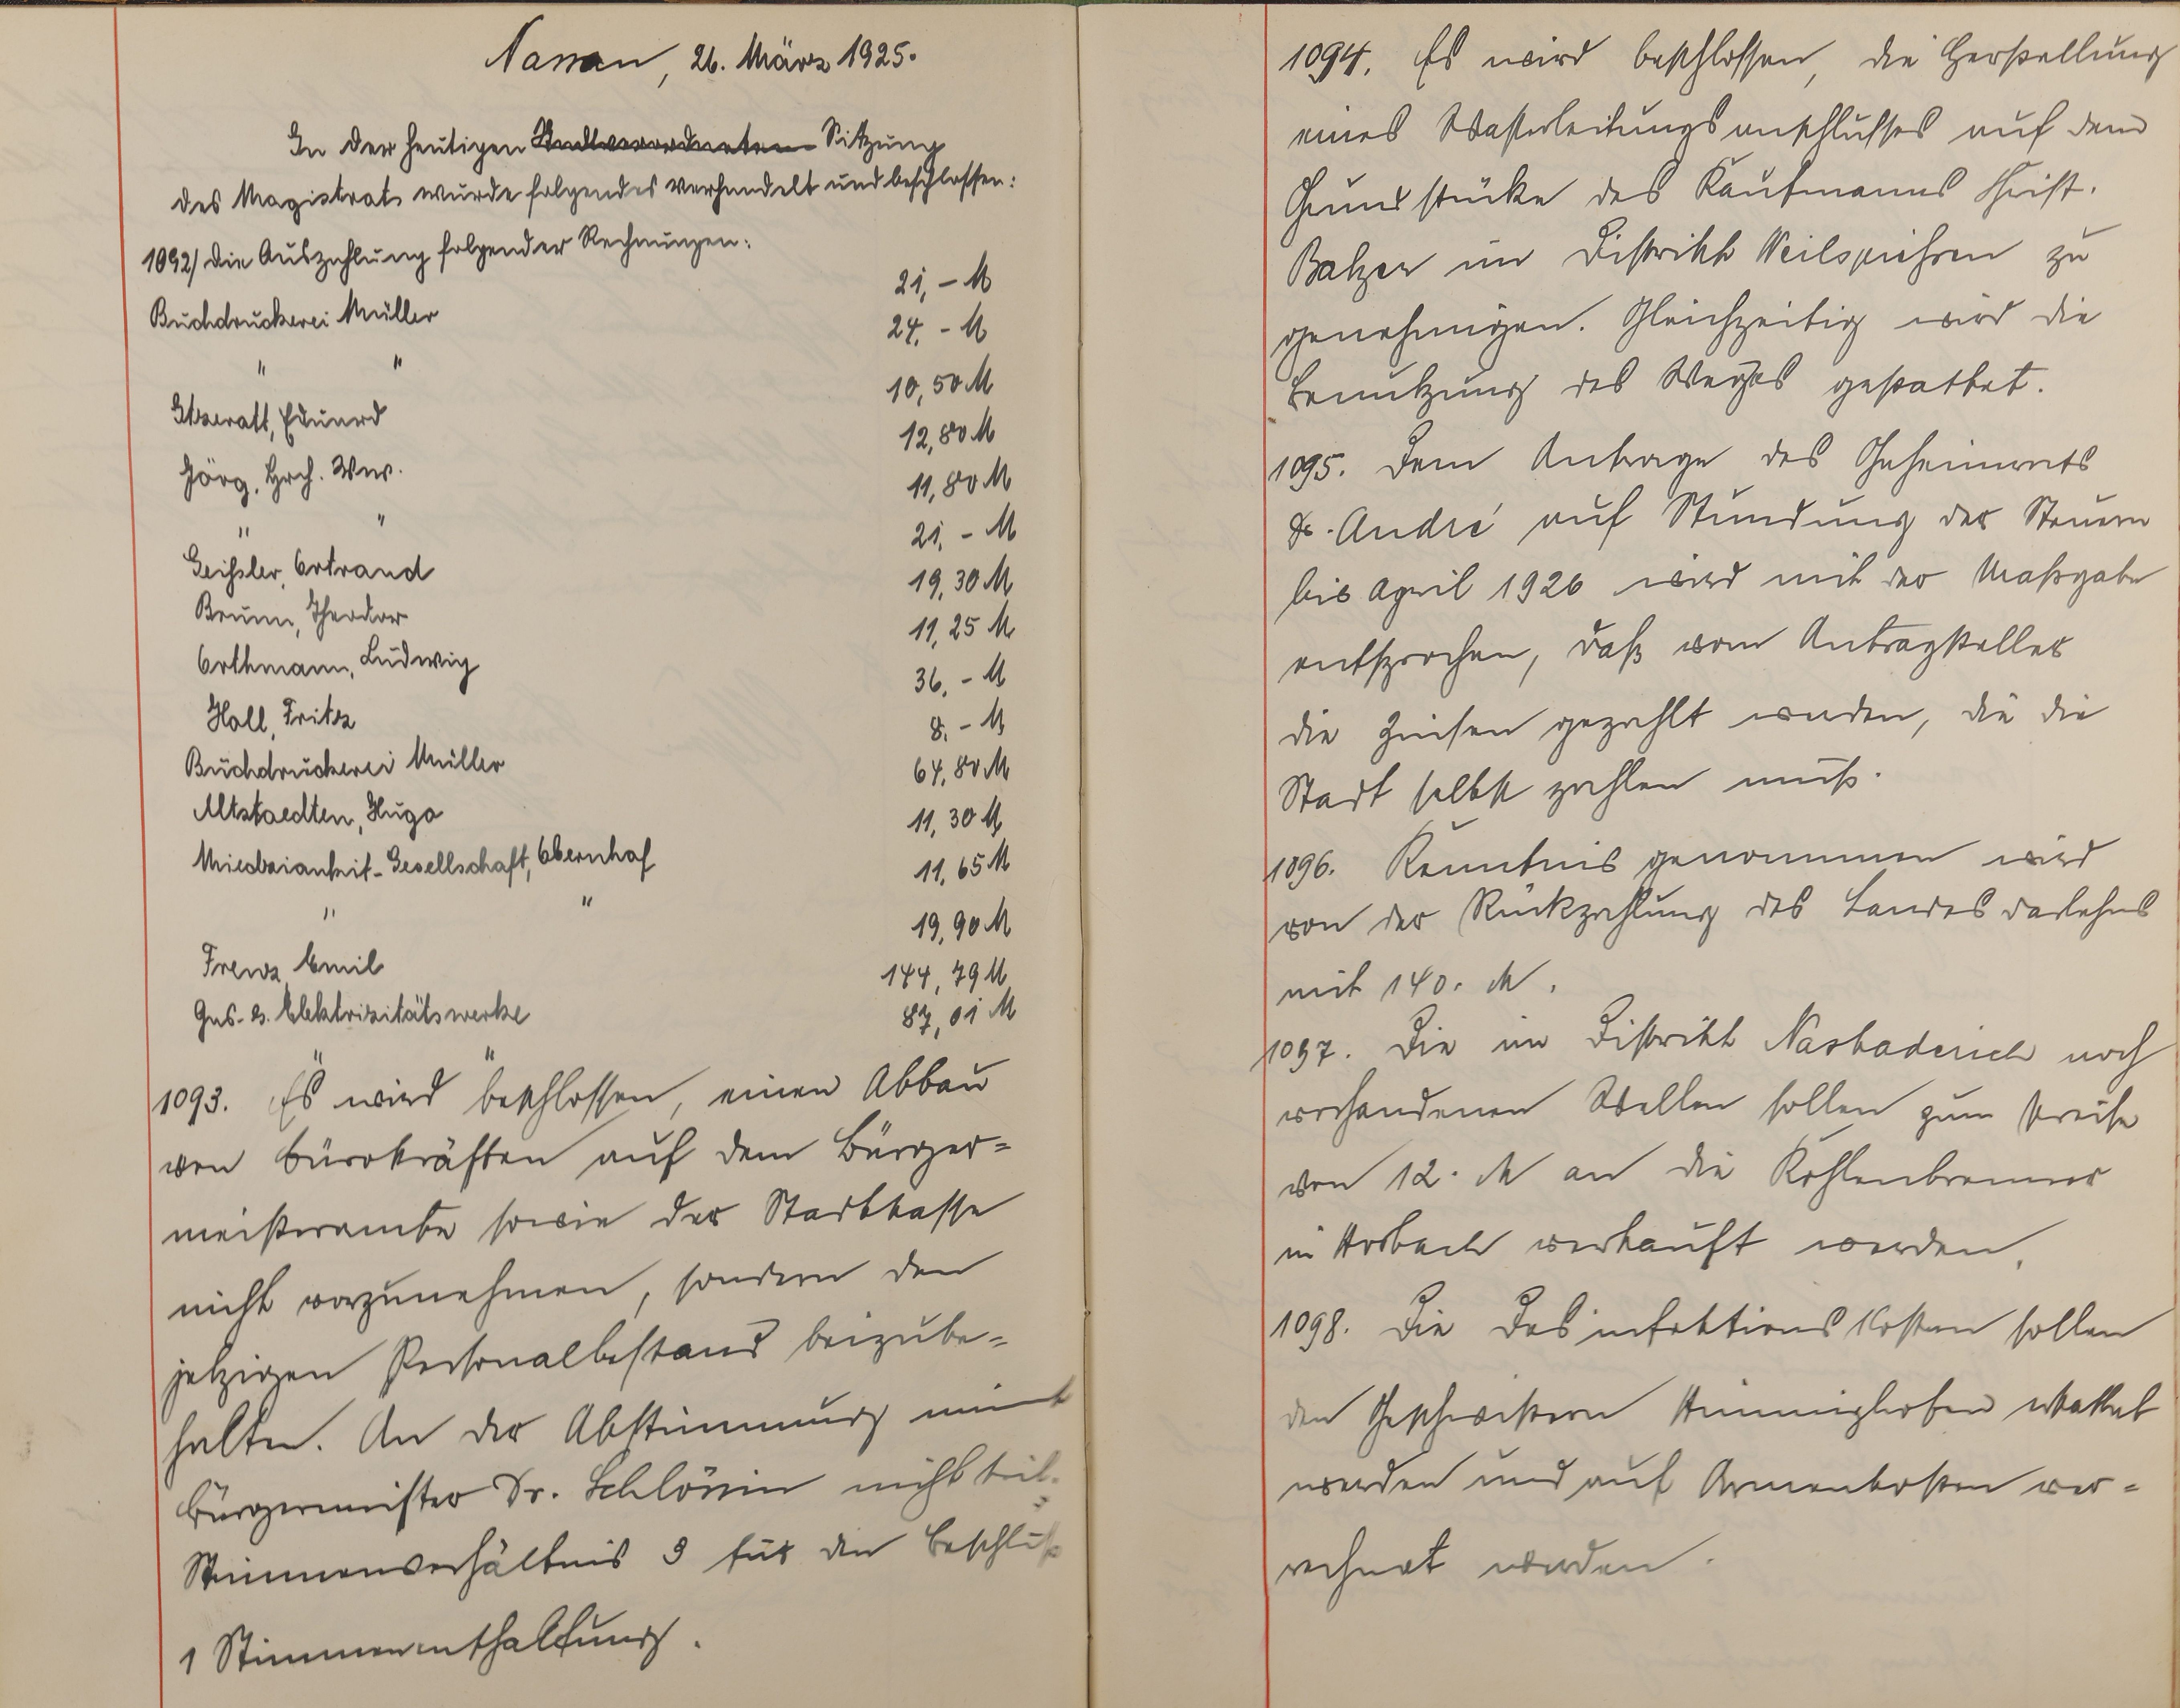 Nassau, 26. März 1925.
In der heutigen Stadtverordneten- Sitzung
des Magistrats wurde folgendes verhandelt und beschlossen:
1092/ Die Auszahlung folgender Rechnungen:
Buchdruckerei Müller 21,- M
" " 24,- M
Eduard 10,50 M
Jörg, Hrch. Wwe. 12,80 M
" " 11,80 M
Geißler, Ortrand 21,- M
Brunn, Theodor 19,30 M
Orthmann, Ludwig 11,25 M
Holl, Fritz 36,- M
Buchdruckerei Müller 8,- M
Altstaedten, Hugo 64,80 M
Gesellschaft, Obernhof 11,30 M
" " 11,65 M
Frenz Emil 19,90 M
Gas- u. Elektrizitätswerke 144,79 M
" " 87,01 M
1093. Es wird beschlossen, einen Abbau
von Bürokräften auf dem Bürger=
meisteramte sowie der Stadtkasse
nicht vorzunehmen, sondern den
jetzigen Personalbestand beizube=
halten. An der Abstimmung nimmt
Bürgermeister Dr. Schlösin nicht teil.
Stimmenverhältnis 3 für den Beschluß
1 Stimmenenthaltung.
1094. Es wird beschlossen, die Herstellung
eines Wasserleitungsanschlusses auf dem
Grundstücke des Kaufmanns Christ.
Balzer im Distrikt zu
genehmigen. Gleichzeitig wird die
Benutzung des Weges gestattet.
1095. Dem Antrage des Geheimrats
Dr. André auf Stundung der Steuern
bis April 1926 wird mit der Maßgabe
entsprochen, daß vom Antragsteller
die Zinsen gezahlt werden, die die
Stadt selbst zahlen muß.
1096. Kenntnis genommen wird
von der Rückzahlung des Landesdarlehns
mit 140. M.
1097. Die im Distrikt noch
vorhandenen Wellen sollen zum Preise
von 12. M an die Kohlenbrenner
in Horbach verkauft werden.
1098. Die Desinfektionskosten sollen
den Geschwistern Himmighofen erstattet
werden und auf Armenkosten ver=
rechnet werden.